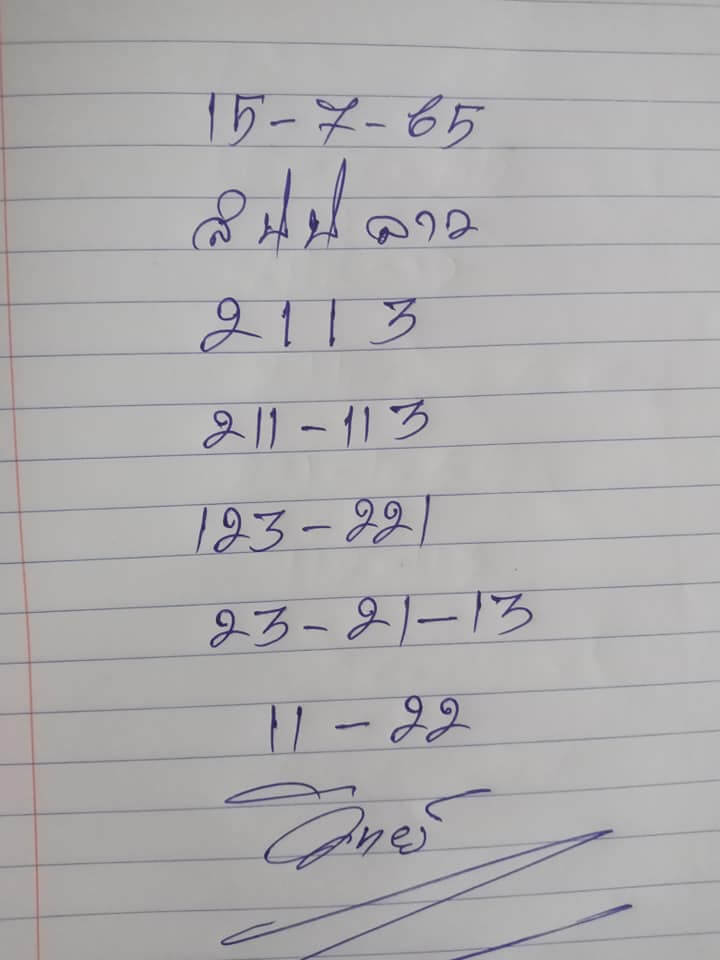 15-7-65
สปป ลาว
2113
211-113
123-221
23-21-13
11-22